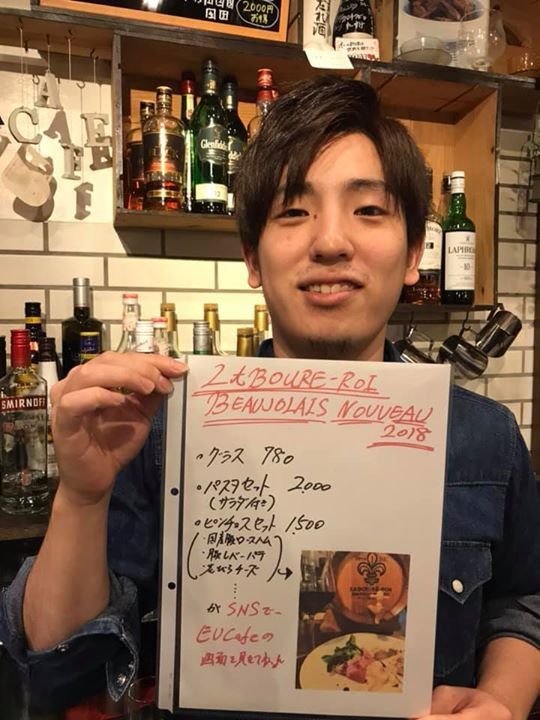 2000円
お得
Glenfiddich
LAPHROAIG
10
SMIRNOFF
CAFE
BOURE-ROI
BEAUJOLAIS NOUVEAU
2018
・グラス 780
・パスタセット 2,000
(サラダ付き)
・ピンチョスセット 1,500
・国産豚ロースハム
・豚レバーパテ
・花びらチーズ
が SNSで
EU Cafeの
画面を見せてね